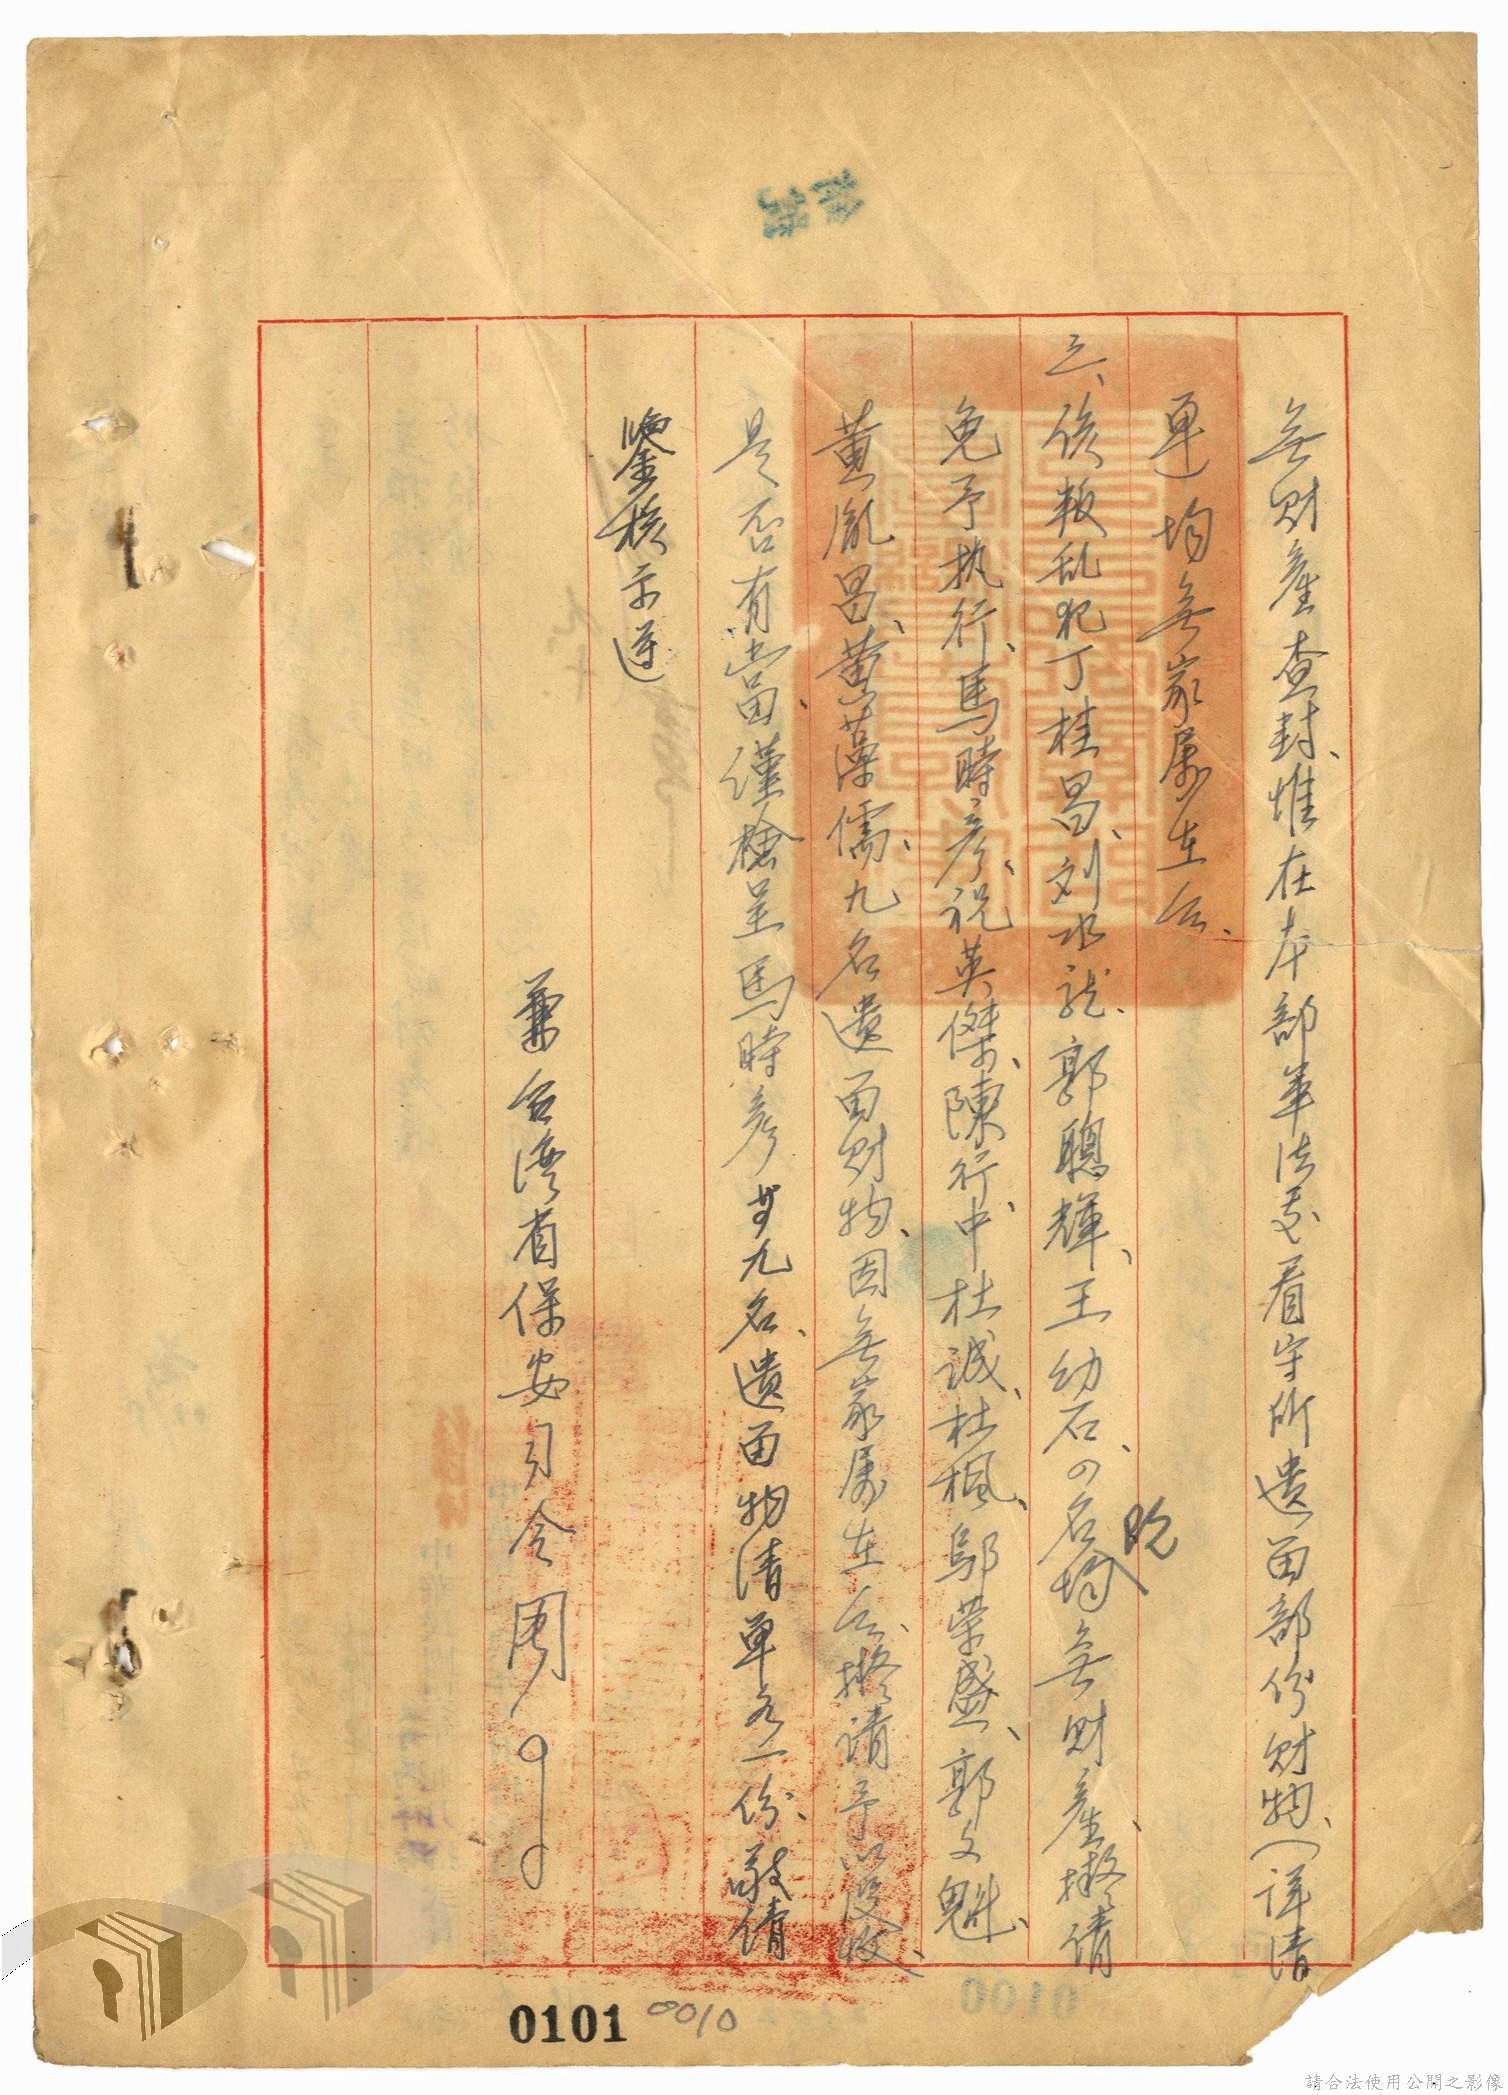 無財產查封、惟在本部軍法處看守所遺留部份財物、(詳清
單)均無家屬在台、
三、該叛乱犯丁桂昌、刘水龍、郭聰輝、王幼石、の名均既無財產擬請
免予执行、馬時彥、祝英傑、陳行中、杜誠、杜楓、鄔荣盛、郭文魁、
黃胤昌、黃藻儒、九名遺留財物、因無家屬在台、擬請予以沒收、
是否有當、謹檢呈馬時彥等九名、遺留物清單各一份、敬請
鑒核示遵
兼台湾省保安司令
0101
0010
0100
請合法使用公開之影像